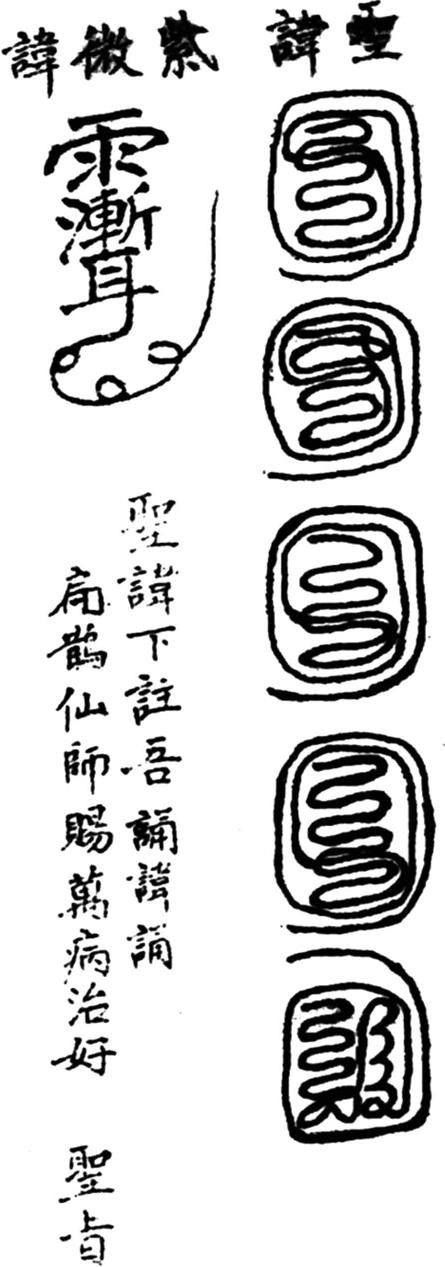 聖諱
紫微諱
雨漸耳
聖諱下註吾誦諱誦
扁鵲仙師賜萬病治好 聖旨